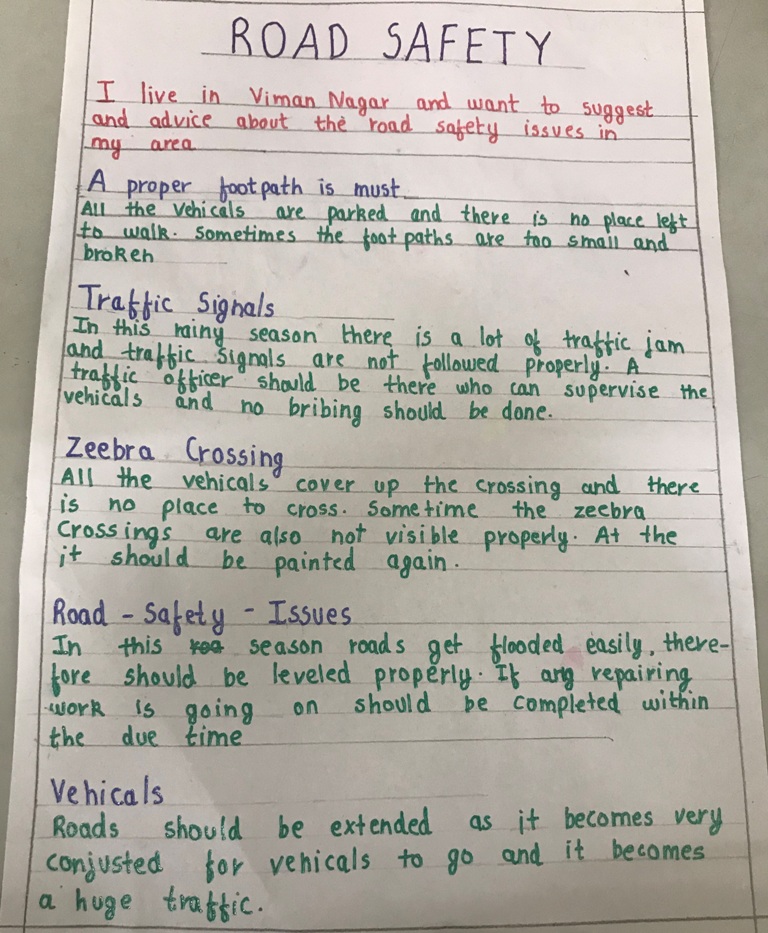 ROAD SAFETY
I live in Viman Nagar and want to suggest
and advice about the road safety issues in
my area
A proper footpath is must
All the vehicals are parked and there is no place left
to walk. Sometimes the foot paths are too small and
broken
Traffic Signals
In this rainy season there is a lot of traffic jam
and traffic signals are not followed properly. A
traffic officer should be there who can supervise the
vehicals and no bribing should be done.
Zeebra Crossing
All the vehicals cover up the crossing and there
is no place to cross. Sometime the zeebra
Crossings are also not visible properly. At the
it should be painted again.
Road - Safety - Issues
In this season roads get flooded easily, there-
fore should be leveled properly. If any repairing
work is going on should be completed within
the due time
Vehicals
Roads should be extended as it becomes very
conjusted for vehicals to go and it becomes
a huge traffic.